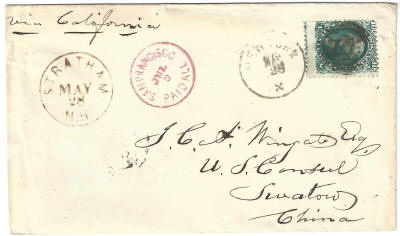 via California
STRATHAM
MAY
28
N.H.
SAN FRANCISCO
JUL
2
PAID ALL
NEW YORK
MAY
29
X
J. C. A. Wingate Esq.
U. S. Consul
Swatow
China